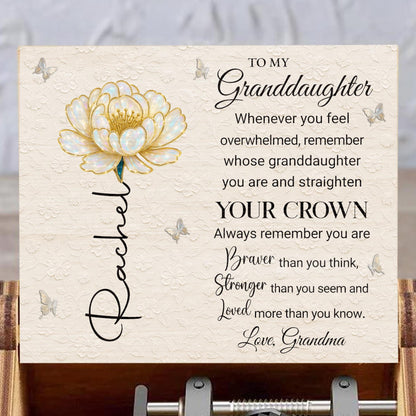 Rachel
TO MY
Granddaughter
Whenever you feel
overwhelmed, remember
whose granddaughter
you are and straighten
YOUR CROWN
Always remember you are
Braver than you think,
Stronger than you seem and
Loved more than you know.
Love, Grandma